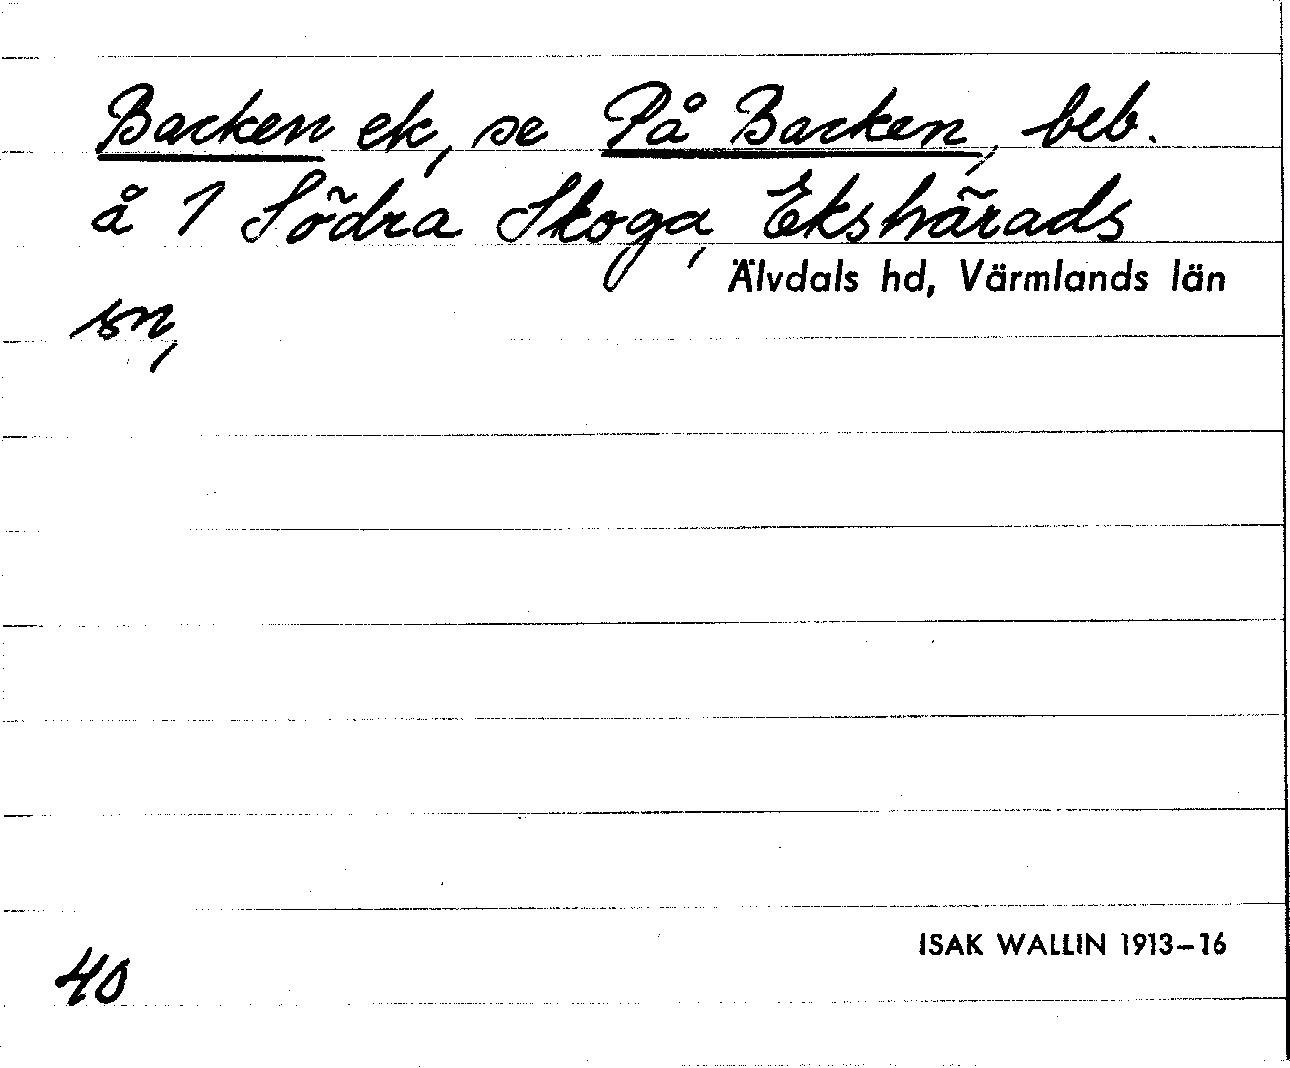 Backen ek, se På Backen, beb.
å 1 Södra Skoga, Ekshärads
Älvdals hd, Värmlands län
sn,
ISAK WALLIN 1913–16
40